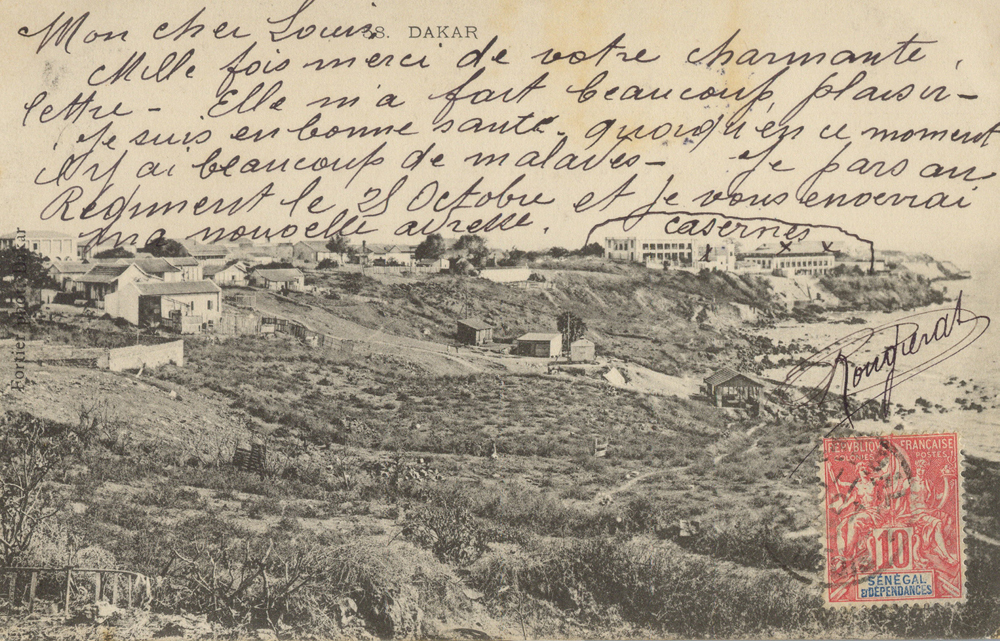 58. DAKAR
Mon cher Louis
Mille fois merci de votre charmante
lettre - Elle m'a fait beaucoup plaisir -
Je suis en bonne santé. quoiqu'en ce moment
il y ai beaucoup de malades - Je pars au
Régiment le 25 Octobre et je vous enverrai
ma nouvelle adresse.
casernes
x x x
Fortier, Dakar
RÉPUBLIQUE FRANÇAISE
COLONIES POSTES
10
SÉNÉGAL
& DÉPENDANCES